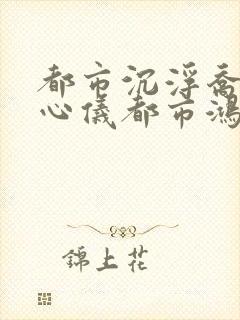 都市沉浮喬
心儀都市鴻
錦上花